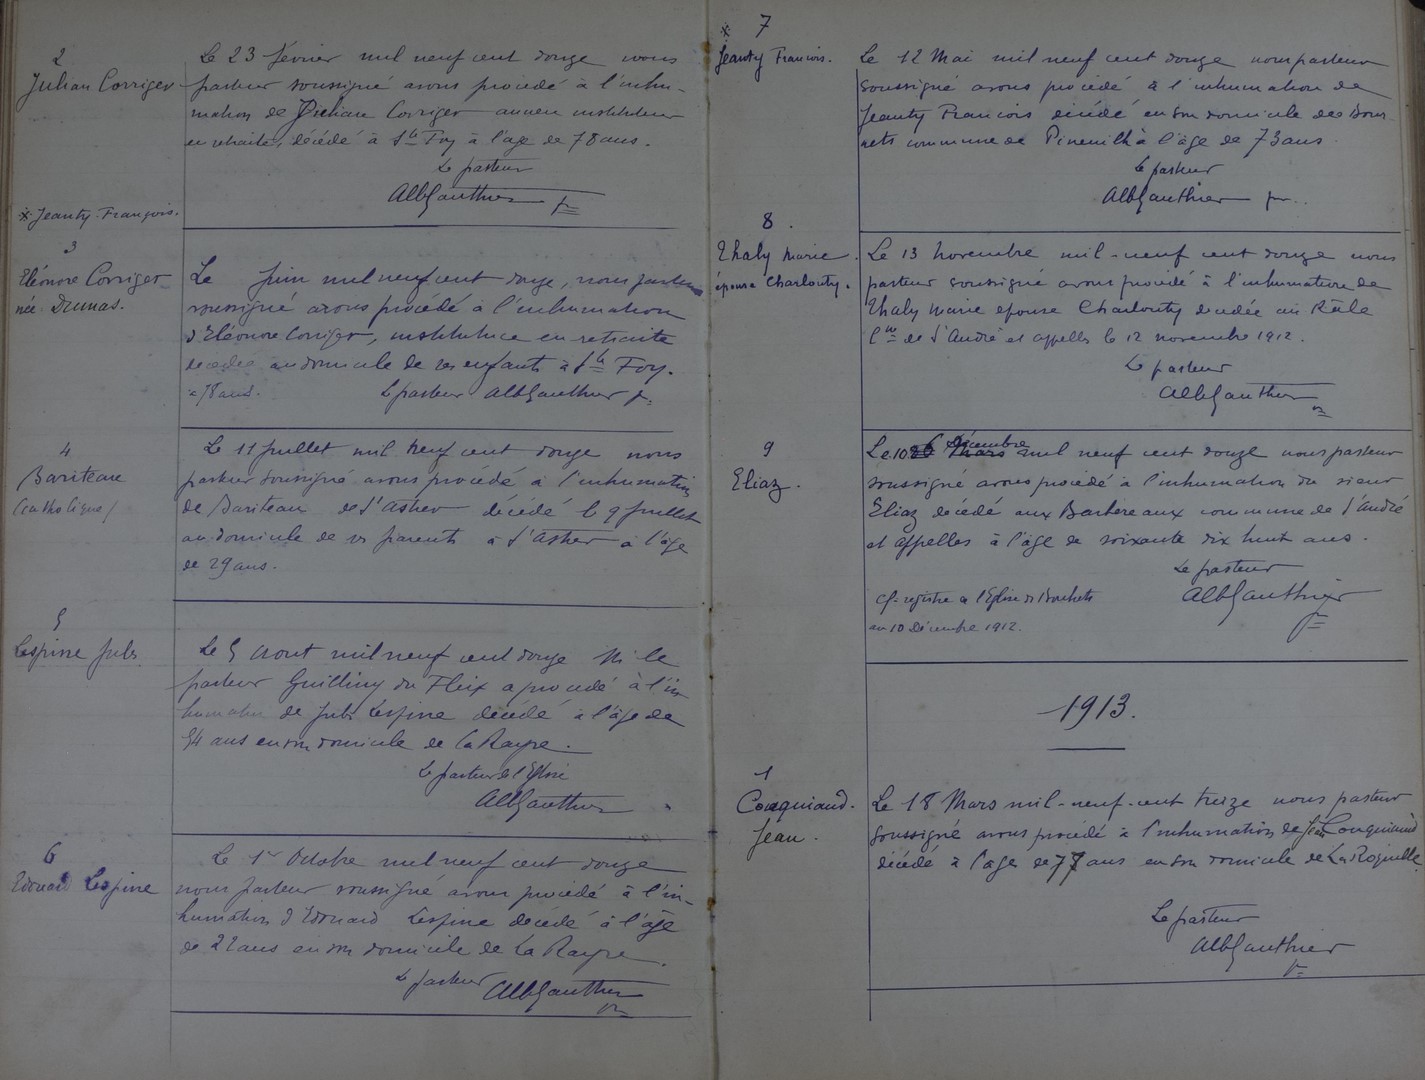 2
Julian Corriger
Le 23 février mil neuf cent douze nous
pasteur soussigné avons procédé à l'inhu-
mation de Julian Corriger ancien instituteur
en retraite, décédé à Ste Foy à l'age de 78 ans.
Le pasteur
AlbGauthier
* Jeanty François.
3
Eléonore Corriger
née Dumas.
Le Juin mil neuf cent douze, nous pasteur
soussigné avons procédé à l'inhumation
d'Eléonore Corriger, institutrice en retraite
décédée au domicile de ses enfants à Ste Foy.
à 78 ans. Le pasteur AlbGauthier
4
Bariteau
(catholique)
Le 11 Juillet mil neuf cent douze nous
pasteur soussigné avons procédé à l'inhumation
de Bariteau de St Astier décédé le 9 Juillet
au domicile de ses parents à St Astier à l'âge
de 29 ans.
5
Lespine Jules
Le 5 Aout mil neuf cent douze Mr le
pasteur du Fleix a procédé à l'in
humation de Jules Lespine décédé à l'âge de
54 ans en son domicile de La Rayre.
Le pasteur de l'Eglise
AlbGauthier
6
Edouard Lespine
Le 1er Octobre mil neuf cent douze
nous pasteur soussigné avons procédé à l'in-
humation d'Edouard Lespine décédé à l'âge
de 22 ans en son domicile de La Rayre.
Le pasteur AlbGauthier
* 7
Jeanty François.
Le 12 Mai mil neuf cent douze nous pasteur
soussigné avons procédé à l'inhumation de
Jeanty François décédé en son domicile des Bour-
nets commune de Pineuilh à l'âge de 73 ans
Le pasteur
AlbGauthier
8.
Thaly Marie
épouse Charlouty.
Le 13 novembre mil-neuf cent douze nous
pasteur soussigné avons procédé à l'inhumation de
Thaly Marie épouse Charlouty décédée au Râle
Cne de St André et appelles le 12 novembre 1912.
Le pasteur
AlbGauthier
9
Eliaz.
Le 10 décembre mil neuf cent douze nous pasteur
soussigné avons procédé à l'inhumation du sieur
Eliaz décédé aux Barbereaux commune de St André
et Appelles à l'âge de soixante dix huit ans.
Le pasteur
Cf. registre de l'Eglise des Bouhets AlbGauthier
au 10 Décembre 1912.
1913.
1
Couquiaud.
Jean.
Le 18 Mars mil-neuf-cent treize nous pasteur
soussigné avons procédé à l'inhumation de Jean Couquiaud
décédé à l'age de 77 ans en son domicile de La Roquille.
Le pasteur
AlbGauthier